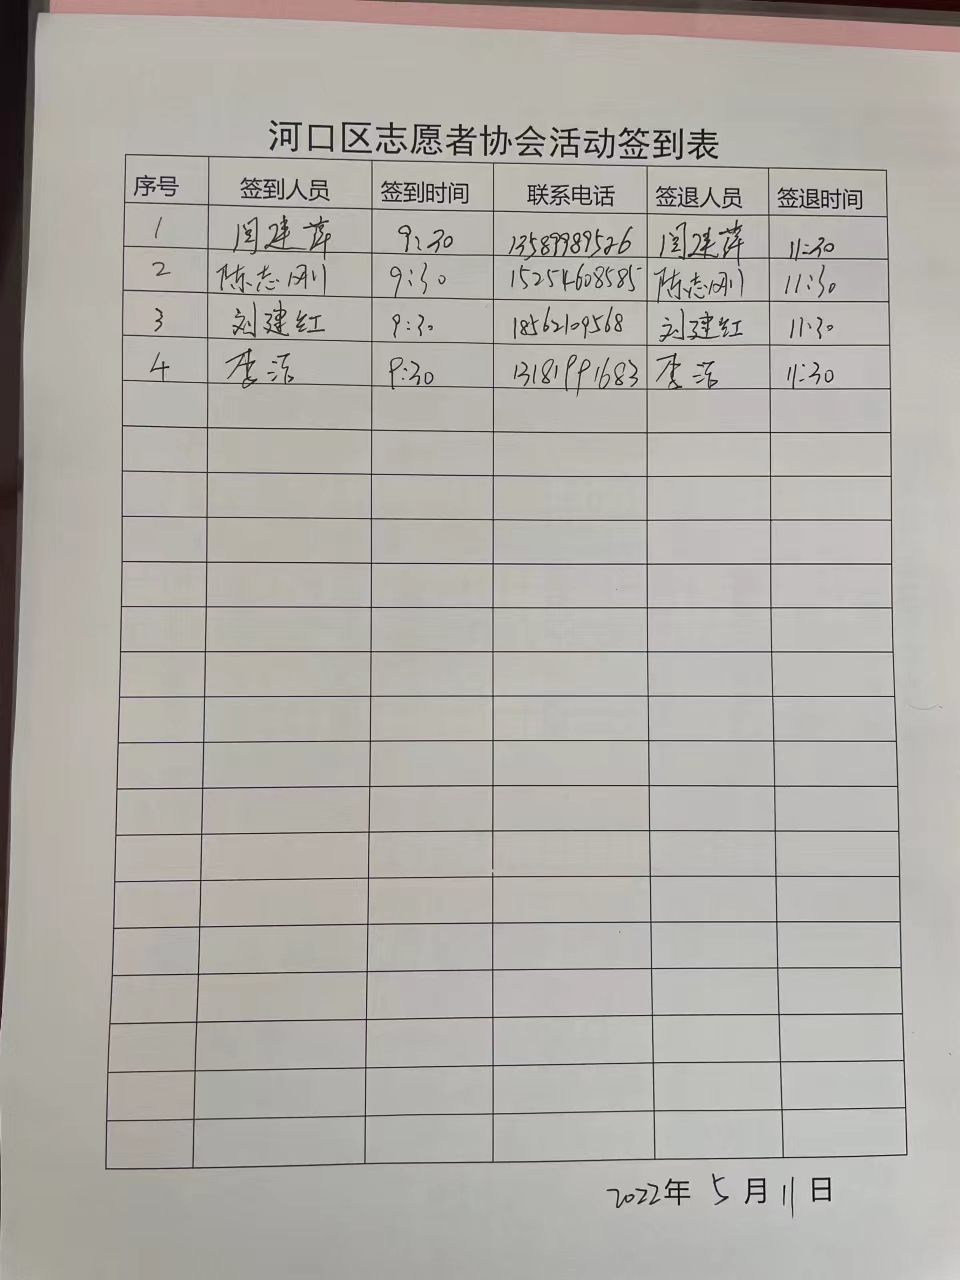 河口区志愿者协会活动签到表
序号 签到人员 签到时间 联系电话 签退人员 签退时间
1 闫建萍 9:30 13589989526 闫建萍 11:30
2 陈志刚 9:30 15254608585 陈志刚 11:30
3 刘建红 9:30 18562109568 刘建红 11:30
4 李洁 9:30 13181991683 李洁 11:30
2022年 5 月 11 日